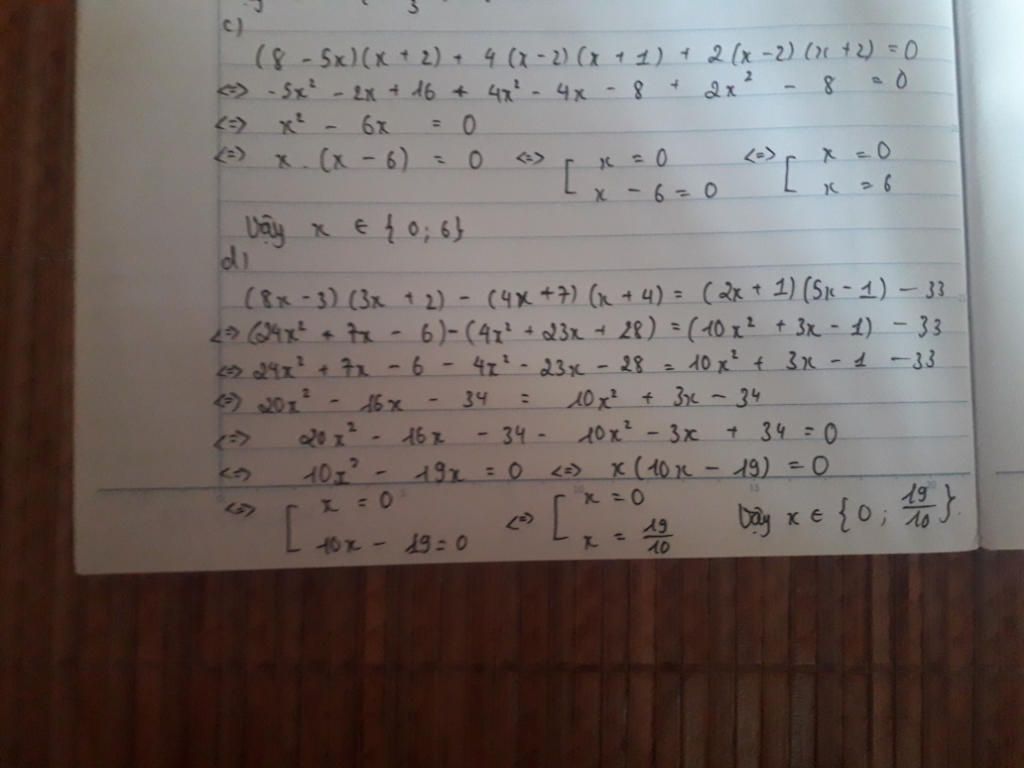 3
c)
(8 - 5x)(x + 2) + 4(x - 2)(x + 1) + 2(x - 2)(x + 2) = 0
<=> -5x² - 2x + 16 + 4x² - 4x - 8 + 2x² - 8 = 0
<=> x² - 6x = 0
<=> x . (x - 6) = 0 <=> [ x = 0 <=> [ x = 0
x - 6 = 0 x = 6
Vậy x ∈ {0; 6}
d)
(8x - 3)(3x + 2) - (4x + 7)(x + 4) = (2x + 1)(5x - 1) - 33
<=> (24x² + 7x - 6) - (4x² + 23x + 28) = (10x² + 3x - 1) - 33
<=> 24x² + 7x - 6 - 4x² - 23x - 28 = 10x² + 3x - 1 - 33
<=> 20x² - 16x - 34 = 10x² + 3x - 34
<=> 20x² - 16x - 34 - 10x² - 3x + 34 = 0
<=> 10x² - 19x = 0 <=> x(10x - 19) = 0
<=> [ x = 0 <=> [ x = 0 Vậy x ∈ {0; 19/10}.
10x - 19 = 0 x = 19/10